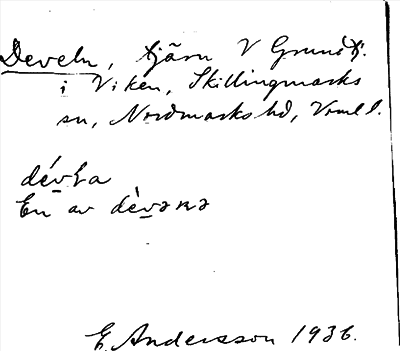 Develn, tjärn V Grundtj.
i Viken, Skillingmarks
sn, Nordmarks hd, Vrml l.
dév̲ḷa
En av dèv̲ənə
E. Andersson 1936.